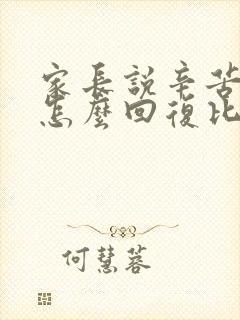 家長說辛苦
怎麼回復比
何慧蓉